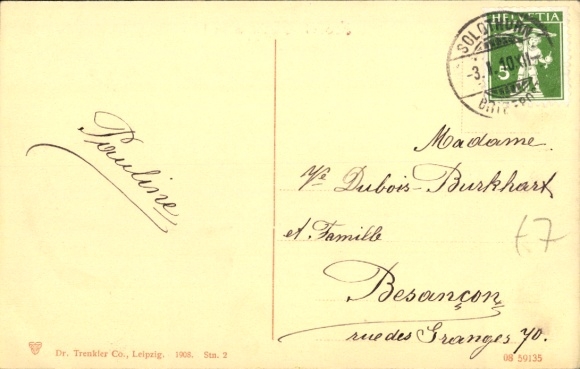 HELVETIA
5
SOLOTHURN
-3.I.10.XII
BRIEF-
Pauline
Madame
Vve Dubois-Burkhart
et Famille
Besançon
rue des Granges 70.
f7
Dr. Trenkler Co., Leipzig. 1908. Stn. 2
08 59135